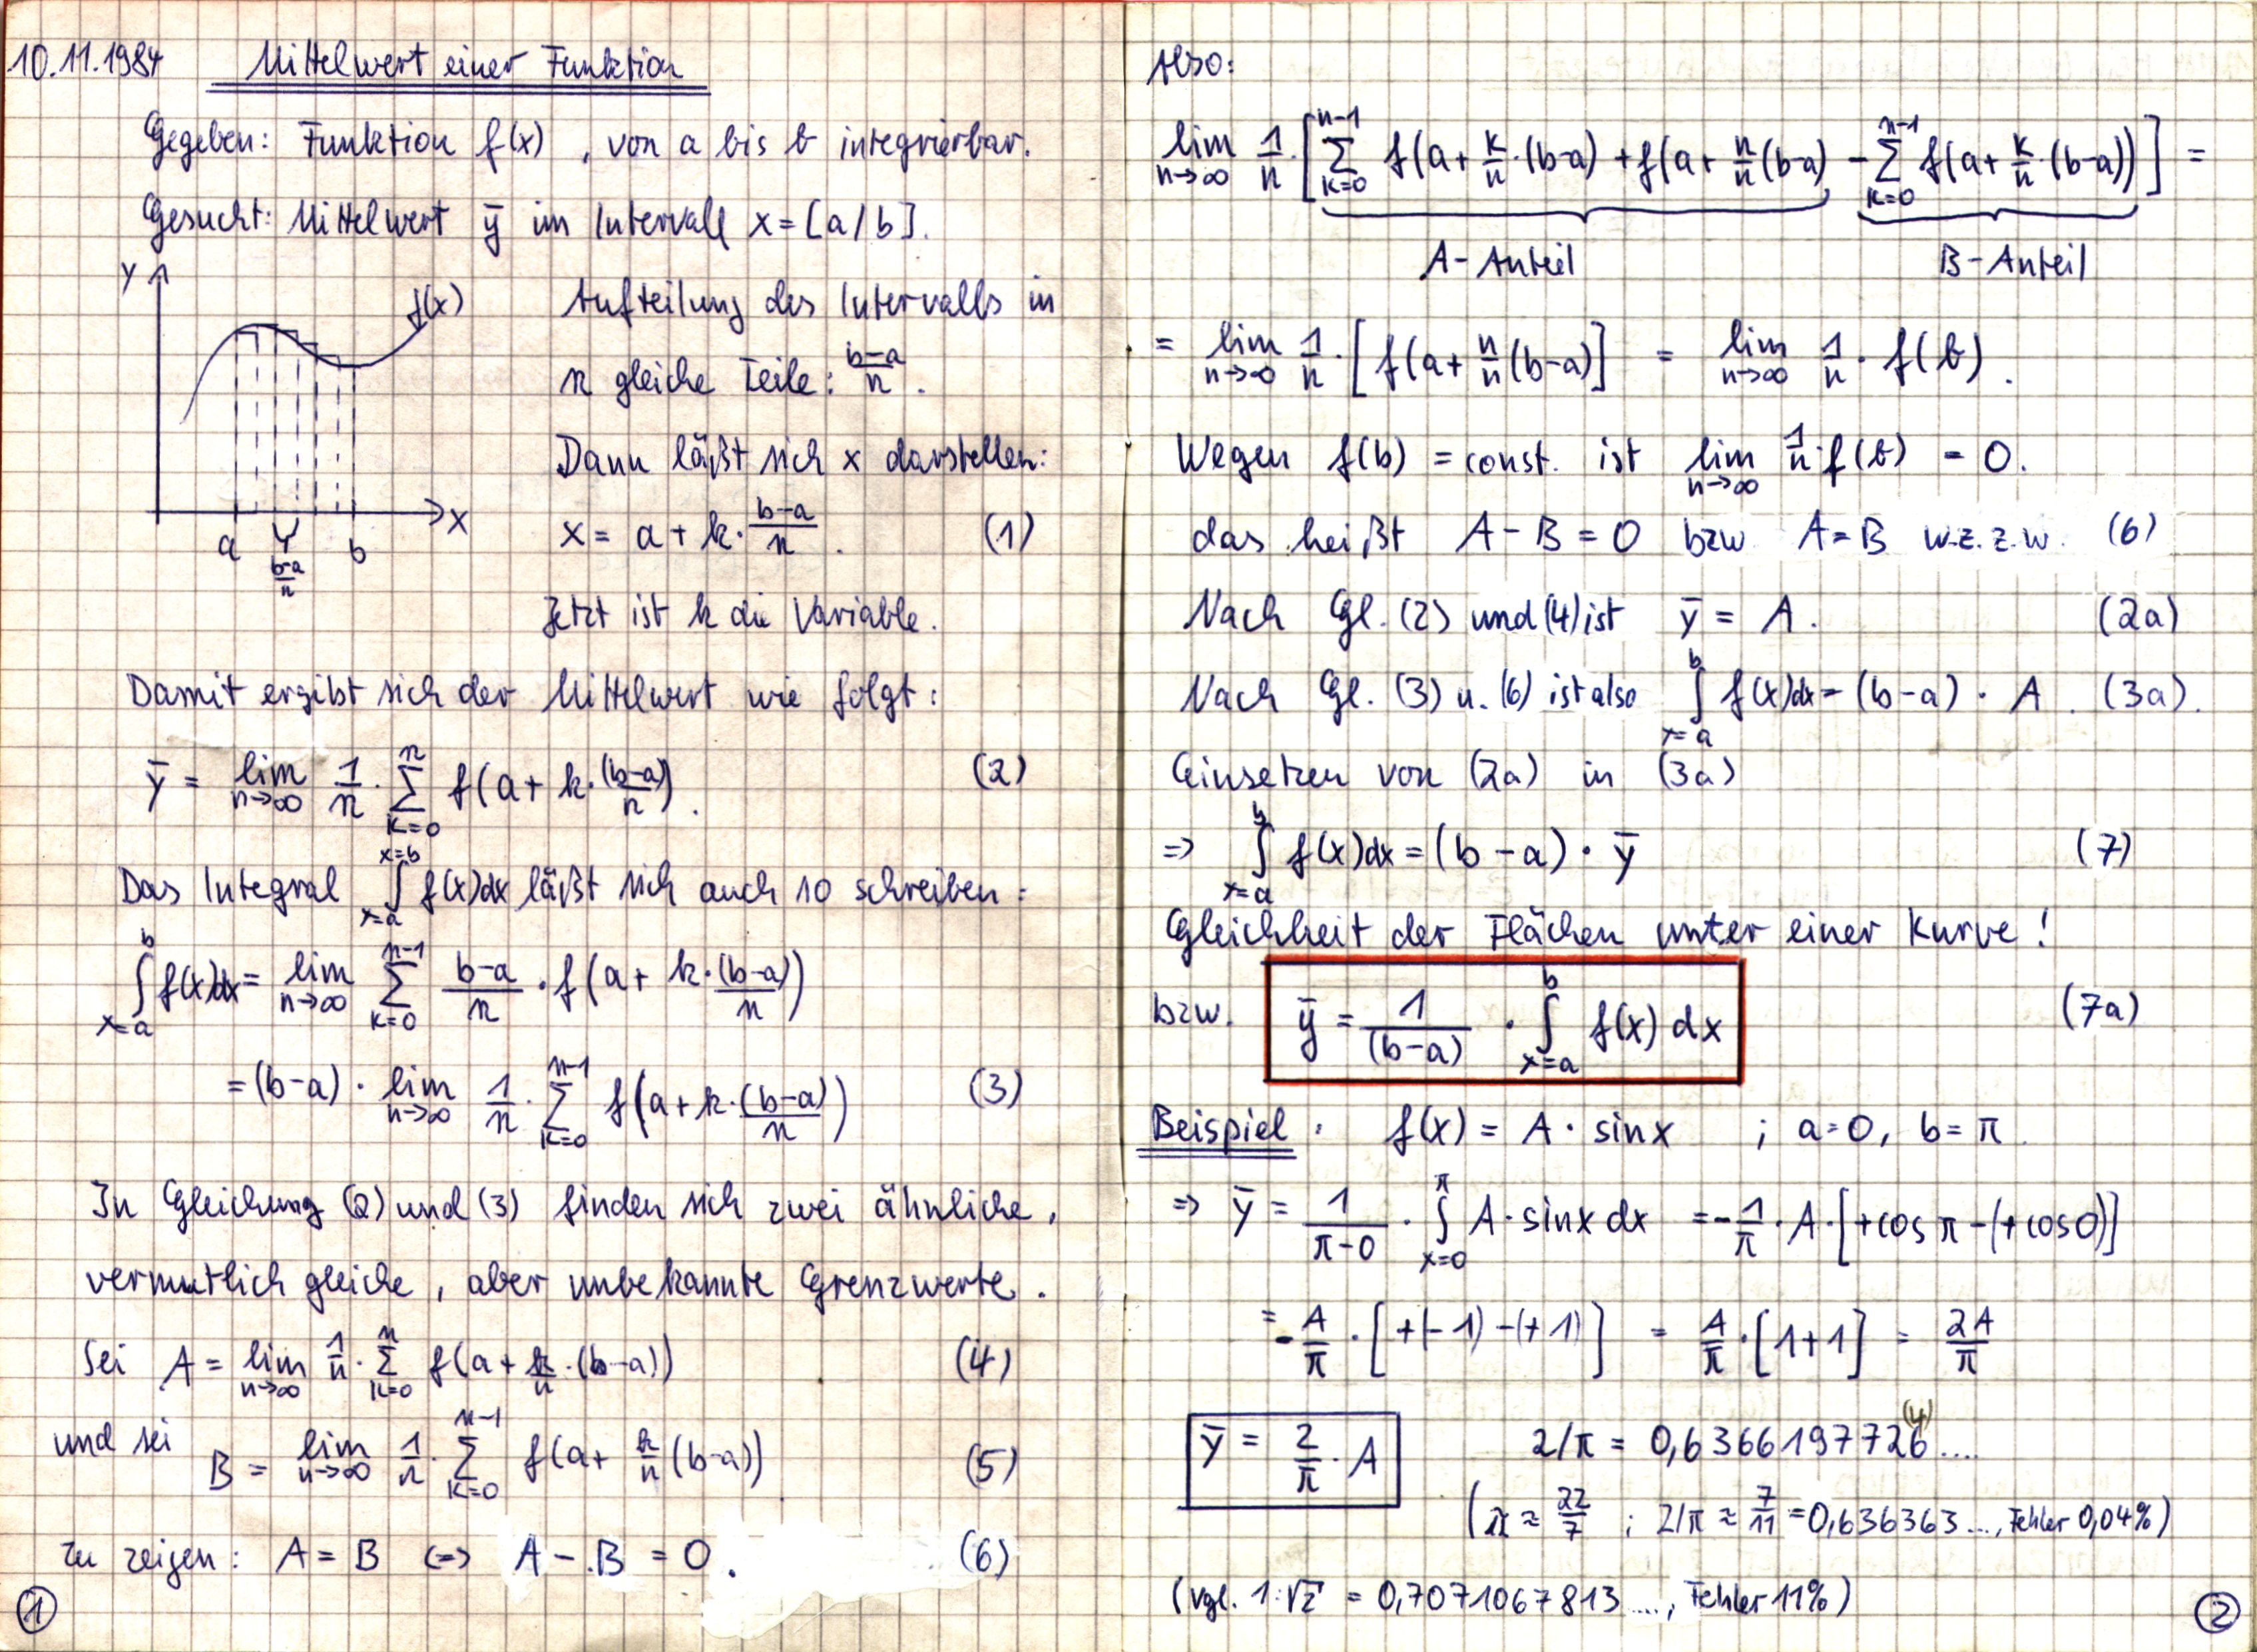 10.11.1984 Mittelwert einer Funktion
Gegeben: Funktion f(x), von a bis b integrierbar.
Gesucht: Mittelwert ȳ im Intervall x = [a/b].
y f(x) x a b (b-a)/n
Aufteilung des Intervalls in
n gleiche Teile: (b-a)/n .
Dann läßt sich x darstellen:
x = a + k · (b-a)/n . (1)
Jetzt ist k die Variable.
Damit ergibt sich der Mittelwert wie folgt:
ȳ = lim n→∞ 1/n · Σ k=0 n f(a + k · (b-a)/n) . (2)
Das Integral ∫ x=a x=b f(x)dx läßt sich auch so schreiben:
∫ x=a b f(x)dx = lim n→∞ Σ k=0 n-1 (b-a)/n · f(a + k · (b-a)/n)
= (b-a) · lim n→∞ 1/n · Σ k=0 n-1 f(a + k · (b-a)/n) (3)
In Gleichung (2) und (3) finden sich zwei ähnliche,
vermutlich gleiche, aber unbekannte Grenzwerte.
Sei A = lim n→∞ 1/n · Σ k=0 n f(a + k/n · (b-a)) (4)
und sei B = lim n→∞ 1/n · Σ k=0 n-1 f(a + k/n (b-a)) (5)
zu zeigen: A = B <=> A - B = 0. (6)
1
Also:
lim n→∞ 1/n · [Σ k=0 n-1 f(a + k/n · (b-a) + f(a + n/n (b-a) - Σ k=0 n-1 f(a + k/n · (b-a))] =
A-Anteil B-Anteil
= lim n→∞ 1/n · [f(a + n/n (b-a)] = lim n→∞ 1/n · f(b) .
Wegen f(b) = const. ist lim n→∞ 1/n · f(b) = 0.
das heißt A - B = 0 bzw. A = B w.z.z.w. (6)
Nach Gl. (2) und (4) ist ȳ = A. (2a)
Nach Gl. (3) u. (6) ist also ∫ x=a b f(x)dx = (b-a) · A . (3a).
Einsetzen von (2a) in (3a)
=> ∫ x=a b f(x)dx = (b-a) · ȳ (7)
Gleichheit der Flächen unter einer Kurve!
bzw. ȳ = 1/(b-a) · ∫ x=a b f(x) dx (7a)
Beispiel: f(x) = A · sinx ; a=0, b=π.
=> ȳ = 1/(π-0) · ∫ x=0 π A · sinx dx = -1/π · A · [+cos π -(+cos0)]
= -A/π · [+(-1) -(+1)] = A/π · [1+1] = 2A/π
ȳ = 2/π · A 2/π = 0,6366197726(4)....
(π ≈ 22/7 ; 2/π ≈ 7/11 = 0,636363..., Fehler 0,04%)
(vgl. 1:√2 = 0,7071067813...., Fehler 11%)
2